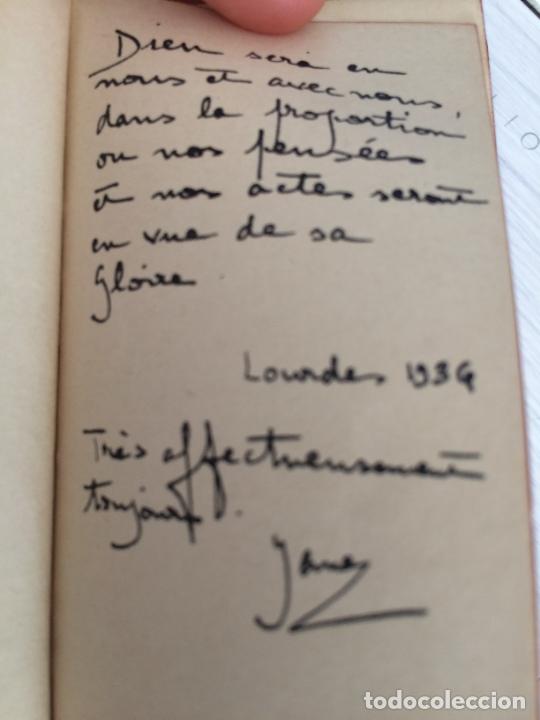 Dieu sera en
nous et avec nous,
dans la proportion
ou nos pensées
et nos actes seront
en vue de sa
Gloire
Lourdes 1934
Très affectueusement
toujours.
Jane
todocoleccion